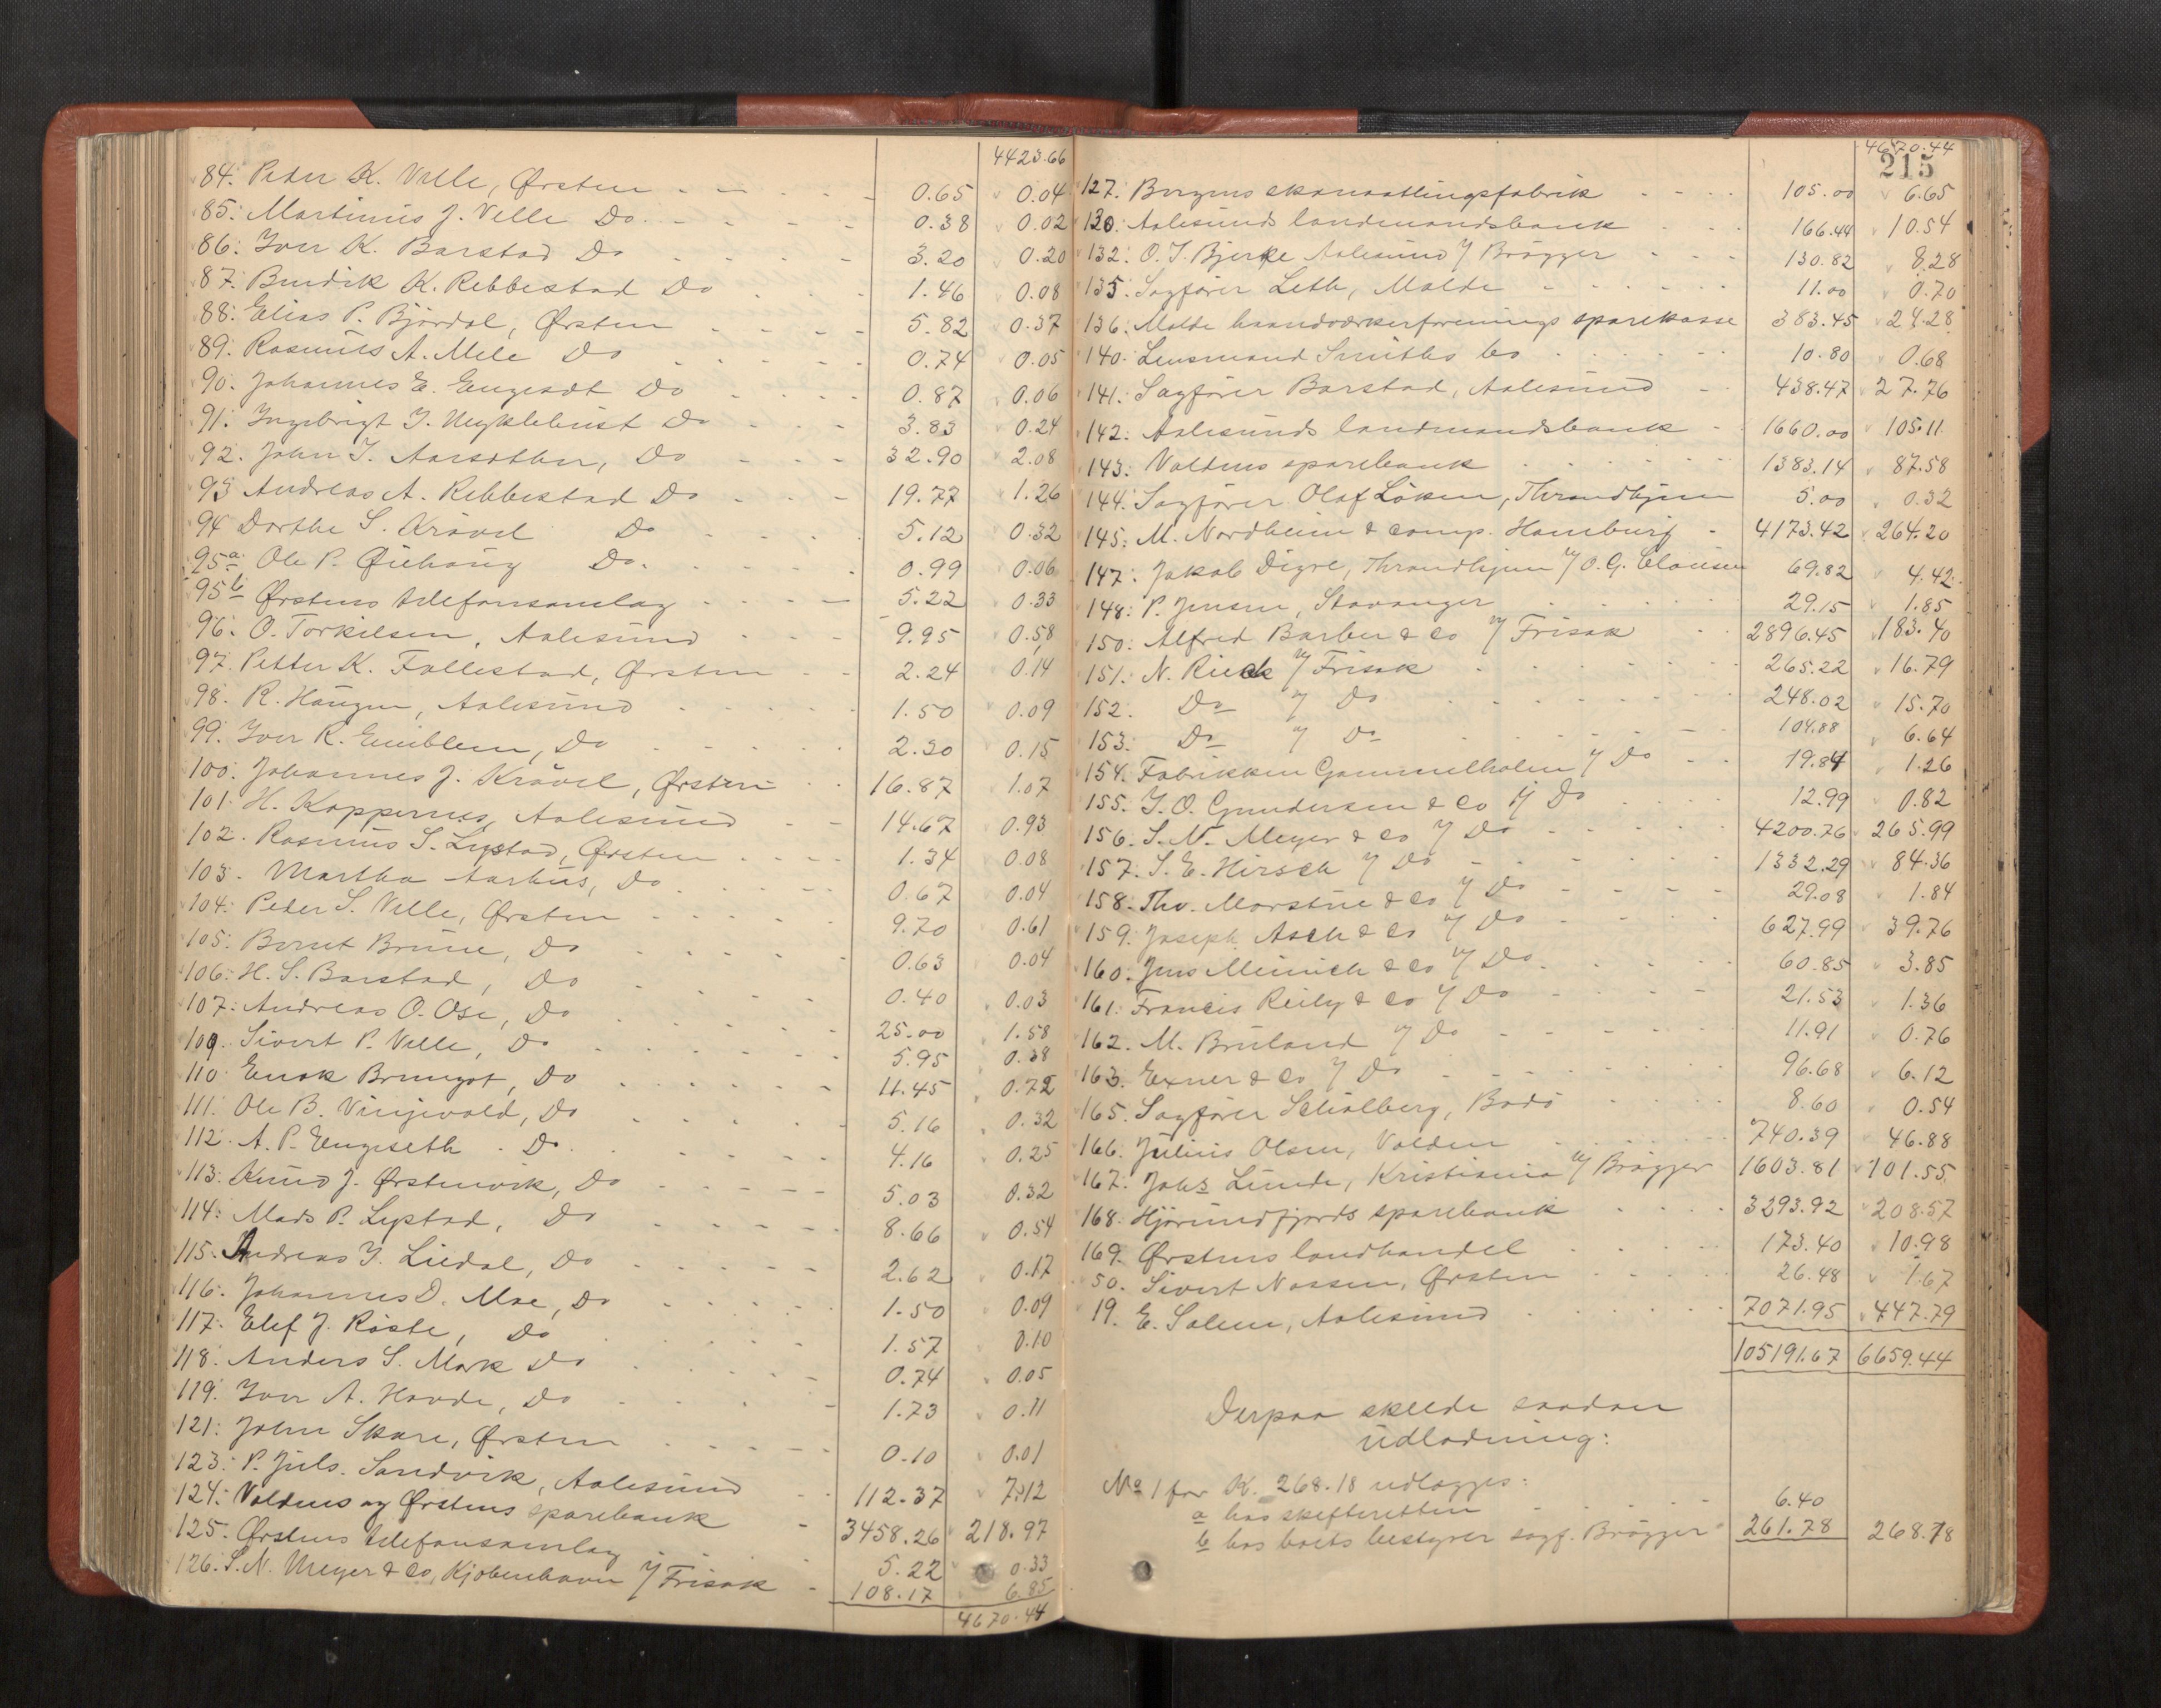 4423.66
84. Peter K. Velle, Ørsten 0.65 0.04
85. Martinus J. Velle Do 0.38 0.02
86. Iver K. Barstad Do 3.20 0.20
87. Bendik K. Rebbestad Do 1.46 0.08
88. Elias P. Bjørdal, Ørsten 5.82 0.37
89. Rasmus A. Mele Do 0.74 0.05
90. Johannes E. Engesdt Do 0.87 0.06
91. Ingebrigt I. Myklebust Do 3.83 0.24
92. John I. Aarsether, Do 32.90 2.08
93 Andreas A. Rebbestad Do 19.77 1.26
94 Dorthe S. Krøvel Do 5.12 0.32
95a Ole P. Øiehaug Do. 0.99 0.06
95b Ørstens telefonsamlag 5.22 0.33
96. O. Torkilsen, Aalesund 9.95 0.58
97. Petter K. Follestad, Ørsten 2.24 0.14
98. R. Haugen, Aalesund 1.50 0.09
99. Iver R. Emblem, Do 2.30 0.15
100. Johannes J. Krøvel, Ørsten 16.87 1.07
101. H. Koppernes, Aalesund 14.67 0.93
102. Rasmus S. Lystad, Ørsten 1.34 0.08
103. Martha Aarhus, Do 0.67 0.04
104. Peder S. Velle, Ørsten 9.70 0.61
105. Bernt Brune, Do 0.63 0.04
106. H. S. Barstad, Do 0.40 0.03
107. Andreas O. Ose, Do 25.00 1.58
109. Sivert P. Velle, Do 5.95 0.38
110. Enok Brungot, Do 11.45 0.72
111. Ole B. Vinjevold, Do 5.16 0.32
112. A. P. Engeseth Do 4.16 0.25
113. Knud J. Ørstenvik, Do 5.03 0.32
114. Mads P. Lystad, Do 8.66 0.54
115. Andreas I. Liedal, Do 2.62 0.17
116. Johannes D. Moe, Do 1.50 0.09
117. Elef J. Røste, Do 1.57 0.10
118. Anders S. Mork Do 0.74 0.05
119. Iver A. Hovde, Do 1.73 0.11
121. John Skare, Ørsten 0.10 0.01
123. P. Juls. Sandvik, Aalesund 112.37 7.12
124. Voldens og Ørstens sparebank 3458.26 218.97
125. Ørstens telefonsamlag 5.22 0.33
126. S. N. Meyer & Co, Kjøbenhavn v/ Frisak 108.17 6.85
4670.44
4670.44
215
127. Bergens skomatlingsfabrik 105.00 6.65
130. Aalesunds landmandsbank 166.44 10.54
132. O. T. Bjerke Aalesund v/ Brøgger 130.82 8.28
135. Sagfører Leth, Molde 11.00 0.70
136. Molde haandværkerforenings sparekasse 383.45 24.28
140. Lensmand Smiths bo 10.80 0.68
141. Sagfører Barstad, Aalesund 438.47 27.76
142. Aalesunds landmandsbank 1660.00 105.11
143. Voldens sparebank 1383.14 87.58
144. Sagfører Olaf Løken, Throndhjem 5.00 0.32
145. M. Nordheim & comp. Hamburg 4173.42 264.20
147. Jakob Digre, Throndhjem v/ O. G. Clausen 69.82 4.42
148. P. Jensen, Stavanger 29.15 1.85
150. Alfred Barber & Co v/ Frisak 2896.45 183.40
151. N. Rieck v/ Frisak 265.22 16.79
152. Do v/ Do 248.02 15.70
153. Do v/ Do 104.88 6.64
154. Fabrikken Gammelholm v/ Do 19.84 1.26
155. J. O. Gundersen & Co v/ Do 12.99 0.82
156. S. N. Meyer & Co v/ Do 4200.76 265.99
157. S. E. Hirsch v/ Do 1332.29 84.36
158. Thv. Morstue & Co v/ Do 29.08 1.84
159. Joseph Asch & Co v/ Do 627.99 39.76
160. Jens Meinich & Co v/ Do 60.85 3.85
161. Francis Reily & Co v/ Do 21.53 1.36
162. M. Bruland v/ Do 11.91 0.76
163. Exner & Co v/ Do 96.68 6.12
165. Sagfører Schiølberg, Bodø 8.60 0.54
166. Julius Olsen, Volden 740.39 46.88
167. Johs Lunde, Kristiania v/ Brøgger 1603.81 101.55
168. Hjørundfjords sparebank 3293.92 208.57
169. Ørstens landhandel 173.40 10.98
50. Sivert Nossen, Ørsten 26.48 1.67
19. E. Solem, Aalesund 7071.95 447.79
105191.67 6659.44
Derpaa skeede saadan
udlodning:
No 1 for K. 268.18 udlægges:
a hos skifteretten 6.40
b hos boets bestyrer sagf. Brøgger 261.78 268.18